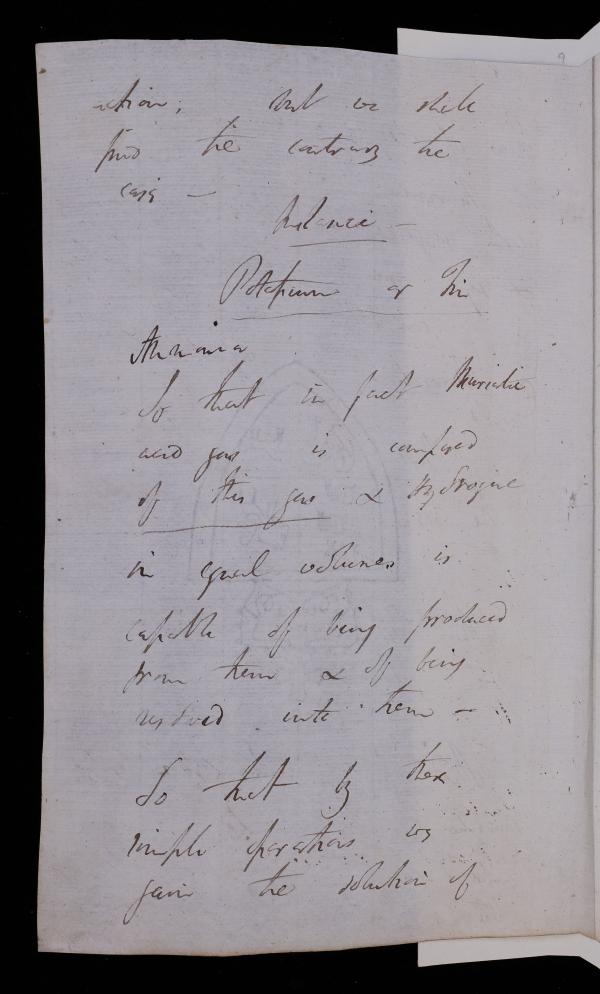 action; but we shall
find the contrary the
case —
Balance —
Potassium or Tin
Ammonia
So that in fact Muriatic
acid gas is composed
of this gas & Hydrogene
in equal volumes is
capable of being produced
from them & of being
resolved into them —
So that by these
simple operations we
gain the solution of
9